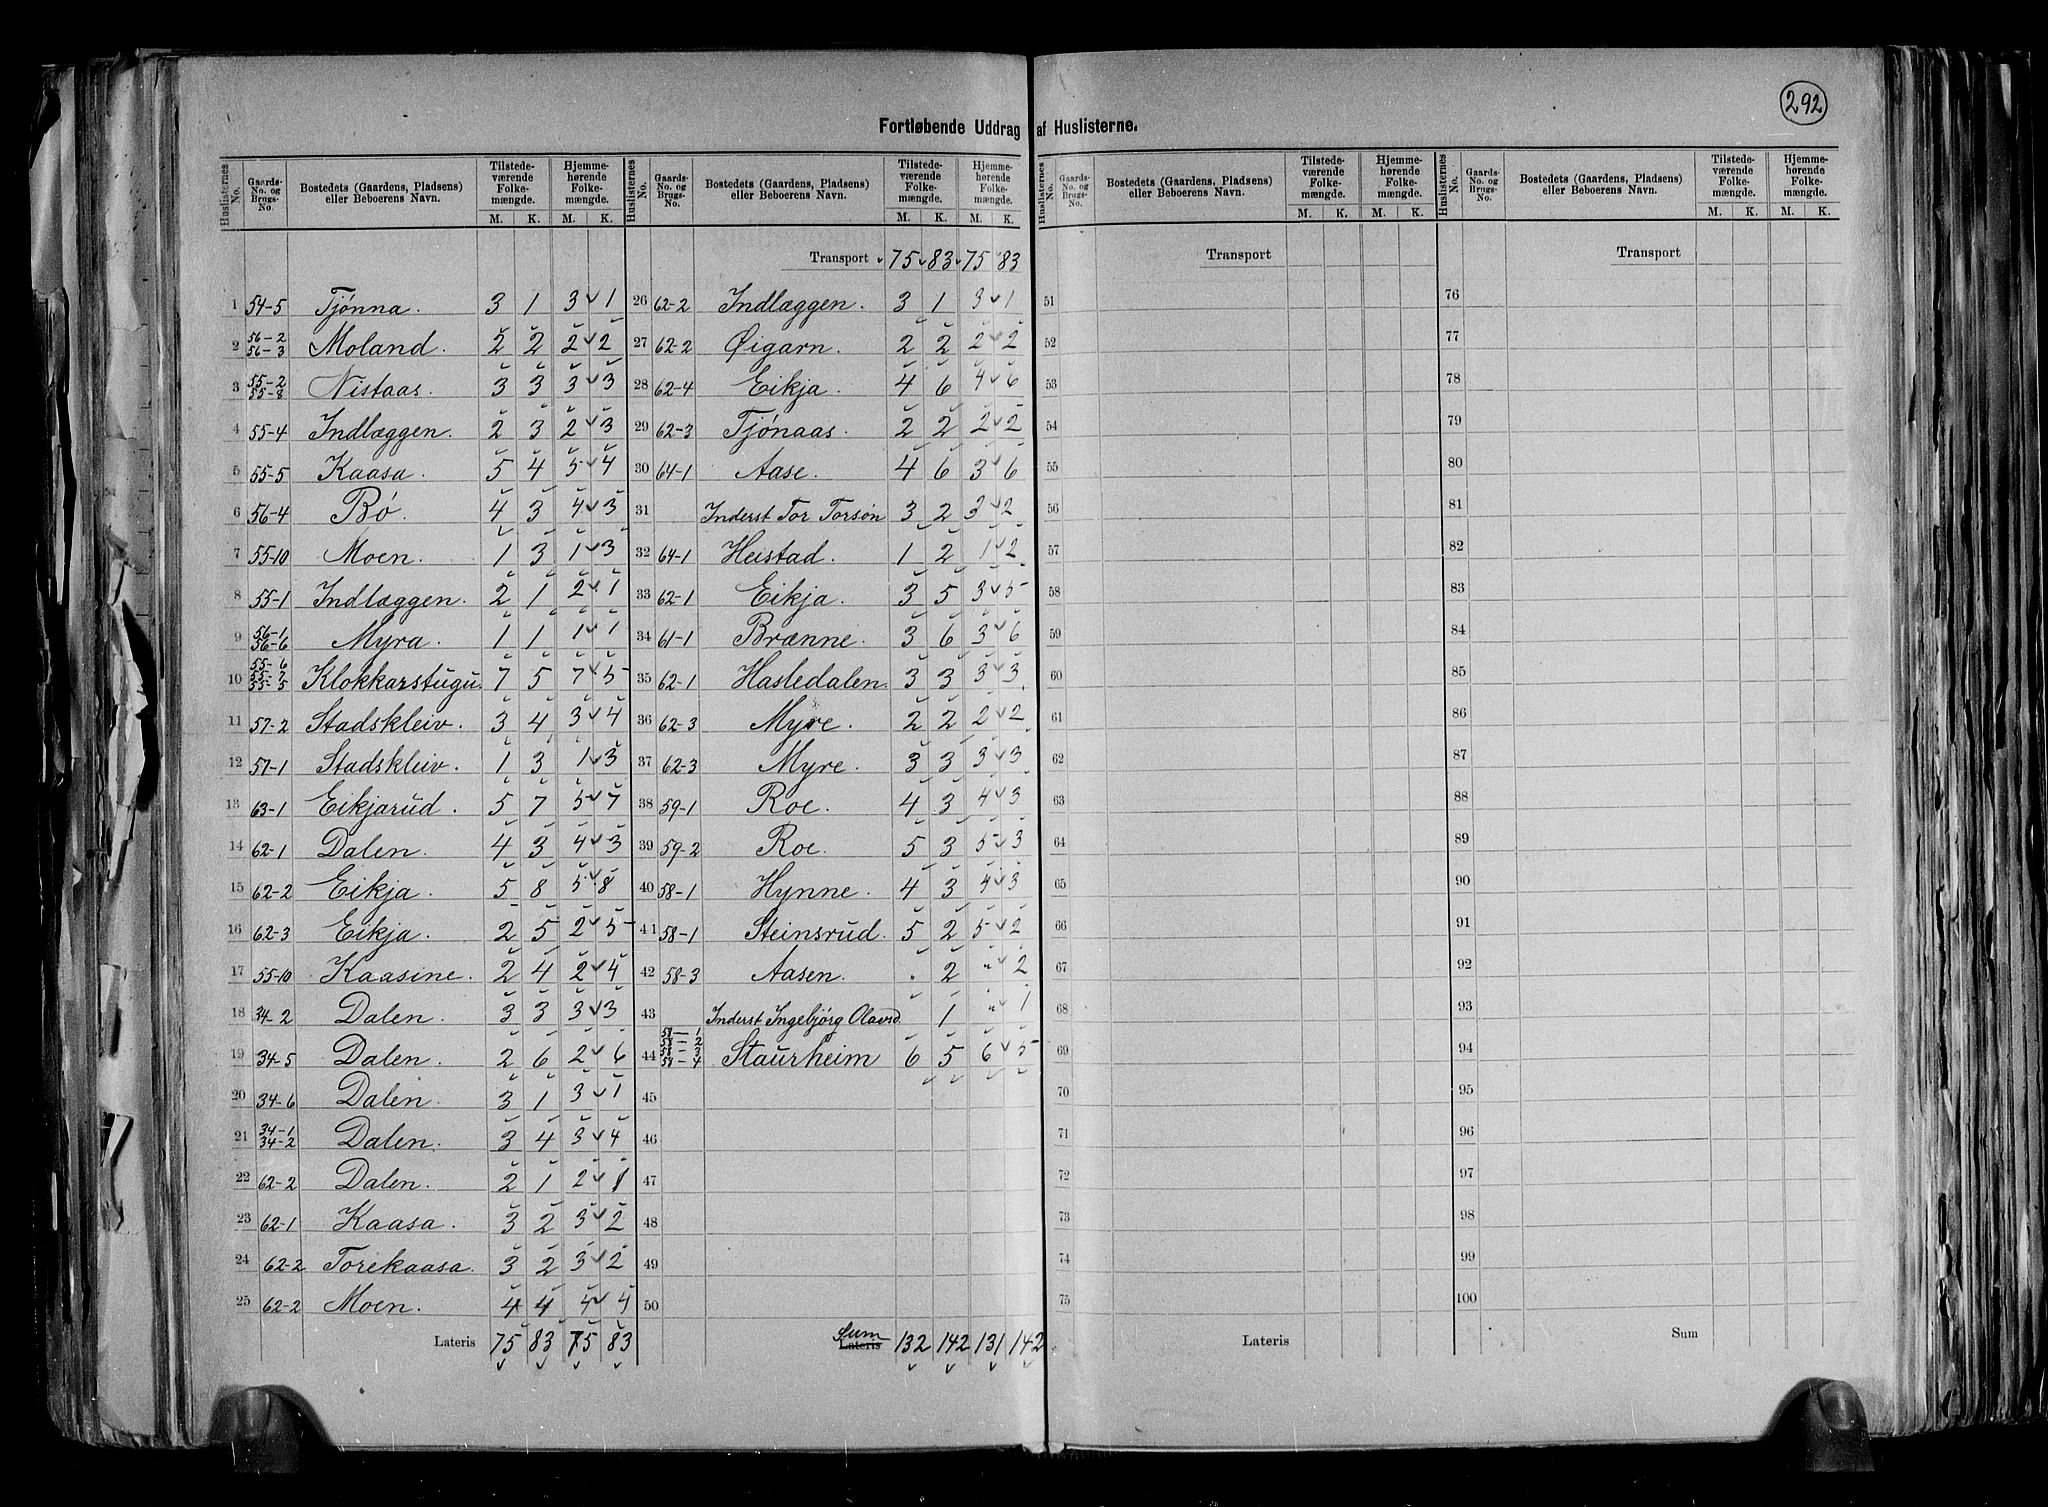 292
Fortløbende Uddrag af Huslisterne.
Huslisternes No. | Gaards-No. og Brugs-No. | Bostedets (Gaardens, Pladsens) eller Beboerens Navn. | Tilstedeværende Folkemængde. M. K. | Hjemmehørende Folkemængde. M. K.
1 54-5 Tjønna 3 1 3 1
2 56-2 56-3 Moland. 2 2 2 2
3 55-2 55-8 Nistaas 3 3 3 3
4 55-4 Indlæggen. 2 3 2 3
5 55-5 Kaasa. 5 4 5 4
6 56-4 Bø. 4 3 4 3
7 55-10 Moen. 1 3 1 3
8 55-1 Indlæggen. 2 1 2 1
9 56-1 56-6 Myra. 1 1 1 1
10 55-6 55-7 55-5 Klokkarstugu. 7 5 7 5
11 57-2 Stadskleiv. 3 4 3 4
12 57-1 Stadskleiv. 1 3 1 3
13 63-1 Eikjarud. 5 7 5 7
14 62-1 Dalen. 4 3 4 3
15 62-2 Eikja. 5 8 5 8
16 62-3 Eikja. 2 5 2 5
17 55-10 Kaasine. 2 4 2 4
18 34-2 Dalen. 3 3 3 3
19 34-5 Dalen. 2 6 2 6
20 34-6 Dalen. 3 1 3 1
21 34-1 34-2 Dalen. 3 4 3 4
22 62-2 Dalen. 2 1 2 1
23 62-1 Kaasa. 3 2 3 2
24 62-2 Torekaasa. 3 2 3 2
25 62-2 Moen. 4 4 4 4
Lateris 75 83 75 83
Huslisternes No. | Gaards-No. og Brugs-No. | Bostedets (Gaardens, Pladsens) eller Beboerens Navn. | Tilstedeværende Folkemængde. M. K. | Hjemmehørende Folkemængde. M. K.
Transport 75 83 75 83
26 62-2 Indlæggen. 3 1 3 1
27 62-2 Øigarn. 2 2 2 2
28 62-4 Eikja. 4 6 4 6
29 62-3 Tjønaas. 2 2 2 2
30 64-1 Aase. 4 6 3 6
31 Inderst Tor Torsøn 3 2 3 2
32 64-1 Heistad. 1 2 1 2
33 62-1 Eikja. 3 5 3 5
34 61-1 Brænne. 3 6 3 6
35 62-1 Hasledalen. 3 3 3 3
36 62-3 Myre. 2 2 2 2
37 62-3 Myre. 3 3 3 3
38 59-1 Roe. 4 3 4 3
39 59-2 Roe. 5 3 5 3
40 58-1 Hynne. 4 3 4 3
41 58-1 Steinsrud. 5 2 5 2
42 58-3 Aasen. " 2 " 2
43 Inderst Ingebjørg Olavsd. 1 " 1
44 58-1 58-2 58-3 58-4 Staurheim 6 5 6 5
45
46
47
48
49
50
Sum Lateris 132 142 131 142
Huslisternes No. | Gaards-No. og Brugs-No. | Bostedets (Gaardens, Pladsens) eller Beboerens Navn. | Tilstedeværende Folkemængde. M. K. | Hjemmehørende Folkemængde. M. K.
Transport
51
52
53
54
55
56
57
58
59
60
61
62
63
64
65
66
67
68
69
70
71
72
73
74
75
Lateris
Huslisternes No. | Gaards-No. og Brugs-No. | Bostedets (Gaardens, Pladsens) eller Beboerens Navn. | Tilstedeværende Folkemængde. M. K. | Hjemmehørende Folkemængde. M. K.
Transport
76
77
78
79
80
81
82
83
84
85
86
87
88
89
90
91
92
93
94
95
96
97
98
99
100
Sum